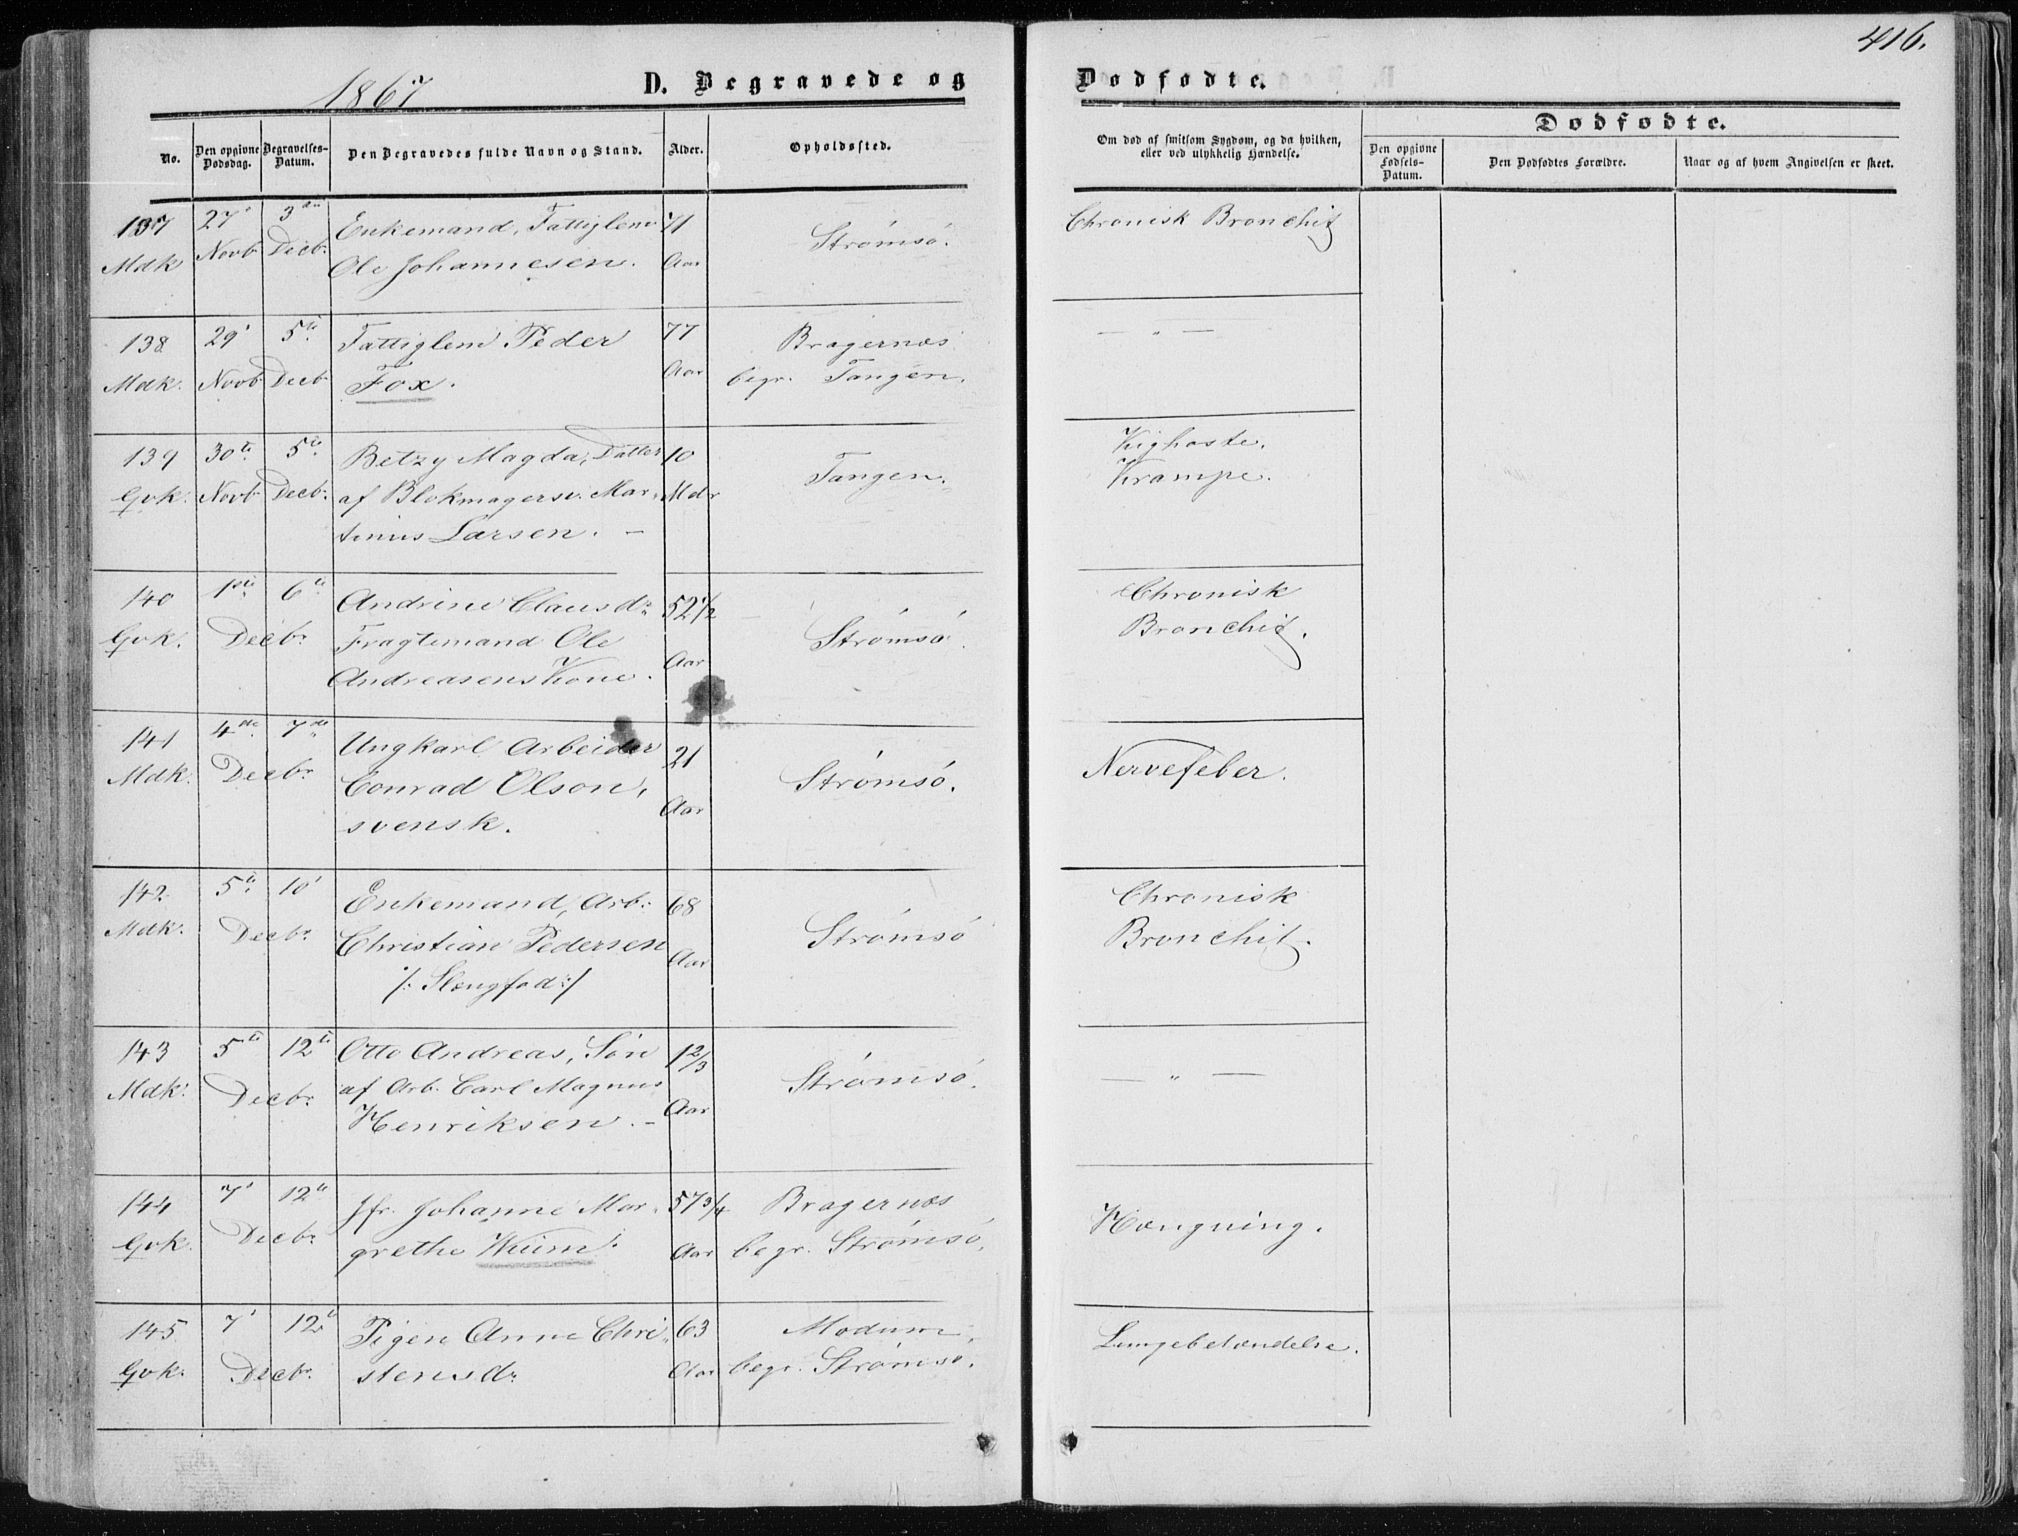 416.
1867
D. Begravede og
Dødfødte.
No.
Den opgivne Dødsdag.
Begravelses-Datum.
Den Begravedes fulde Navn og Stand.
Alder.
Opholdssted.
Om død af smitsom Sygdom, og da hvilken, eller ved ulykkelig Hændelse.
Dødfødte.
Den opgivne Fødsels-Datum.
Den Dødfødtes Forældre.
Naar og af hvem Angivelsen er skeet.
137 27' 3die Enkemand, Fattiglem 71 Strømsø. Chronisk Bronchit
Mdk Novb Decb: Ole Johannesen. Aar
138 29' 5te Fattiglem Peder 77 Bragernæs — " —
Mdk. Novb Decb Fox. Aar begr. Tangen.
139 30te 5te Betzy Magda, Datter 10 Tangen. Kighoste.
Gvk. Novb Decb: af Blokmagersv. Mar- Mdr Krampe.
tinius Larsen. —
140 1ste 6te Andrine Clausdr 52 1/2 Strømsø. Chronisk
Gvk. Decbr. Fragtemand Ole Aar Bronchit.
Andreasens Kone.
141 4de 7de Ungkarl Arbeider 21 Strømsø. Nervefeber.
Mdk. Decbr Conrad Olson, Aar
svensk.
142 5te 10' Enkemand, Arb: 68 Strømsø Chronisk
Mdk. Decbr. Christian Pedersen Aar Bronchit.
/: Slengfod :/
143 5te 12te Otto Andreas, Søn 1 2/3 Strømsø. — " —
Mdk: Decbr. af Arb. Carl Magnus Aar
Henriksen. —
144 7' 12te Jfr. Johanne Mar- 57 3/4 Bragernæs Hængning.
Gvk. Decbr grethe Wiium. Aar begr. Strømsø.
145 7' 12te Pigen Anne Chri- 63 Modum, Lungebetændelse.
Gvk. Decbr. stensdr Aar begr. Strømsø.